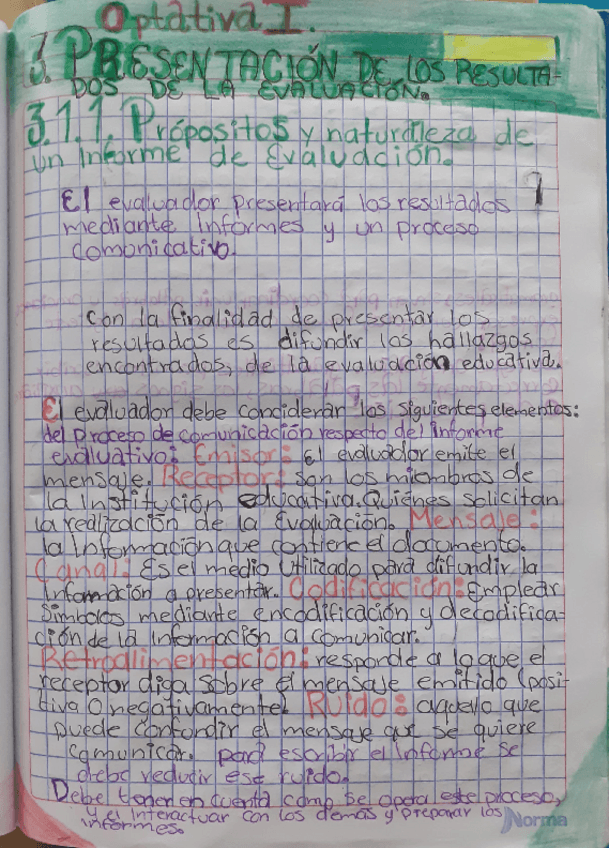 Optativa I.
3. PRESENTACIÓN DE LOS RESULTA-
DOS DE LA EVALUACIÓN.
3.1.1. Própositos y naturaleza de
un Informe de Evaluación.
El evaluador presentará los resultados
mediante Informes y un proceso
comonicativo.
con la finalidad de presentar los
resultados es difundir los hallazgos
encontrados, de la evaluación educativa.
El evaluador debe conciderar los siguientes elementos:
del proceso de comunicación respecto del Informe
evaluativo: Emisor: El evaluador emite el
mensaje. Receptor: son los miembros de
la Institución educativa. Quiénes solicitan
la realización de la Evaluación. Mensaje:
la Información que contiene el documento.
Canal: Es el medio utilizado para difundir la
Información a presentar. Codificación: Emplear
Simbolos mediante encodificación y decodifica-
ción de la información a comunicar.
Retroalimentación: responde a lo que el
receptor diga sobre el mensaje emitido (posi-
tiva o negativamente). Ruido: aquello que
puede confundir el mensaje que se quiere
comunicar. para escribir el Informe se
debe reducir ese ruido.
Debe tener en cuenta como se opera este proceso,
y el interactuar con los demás y preparar los
informes.
Norma